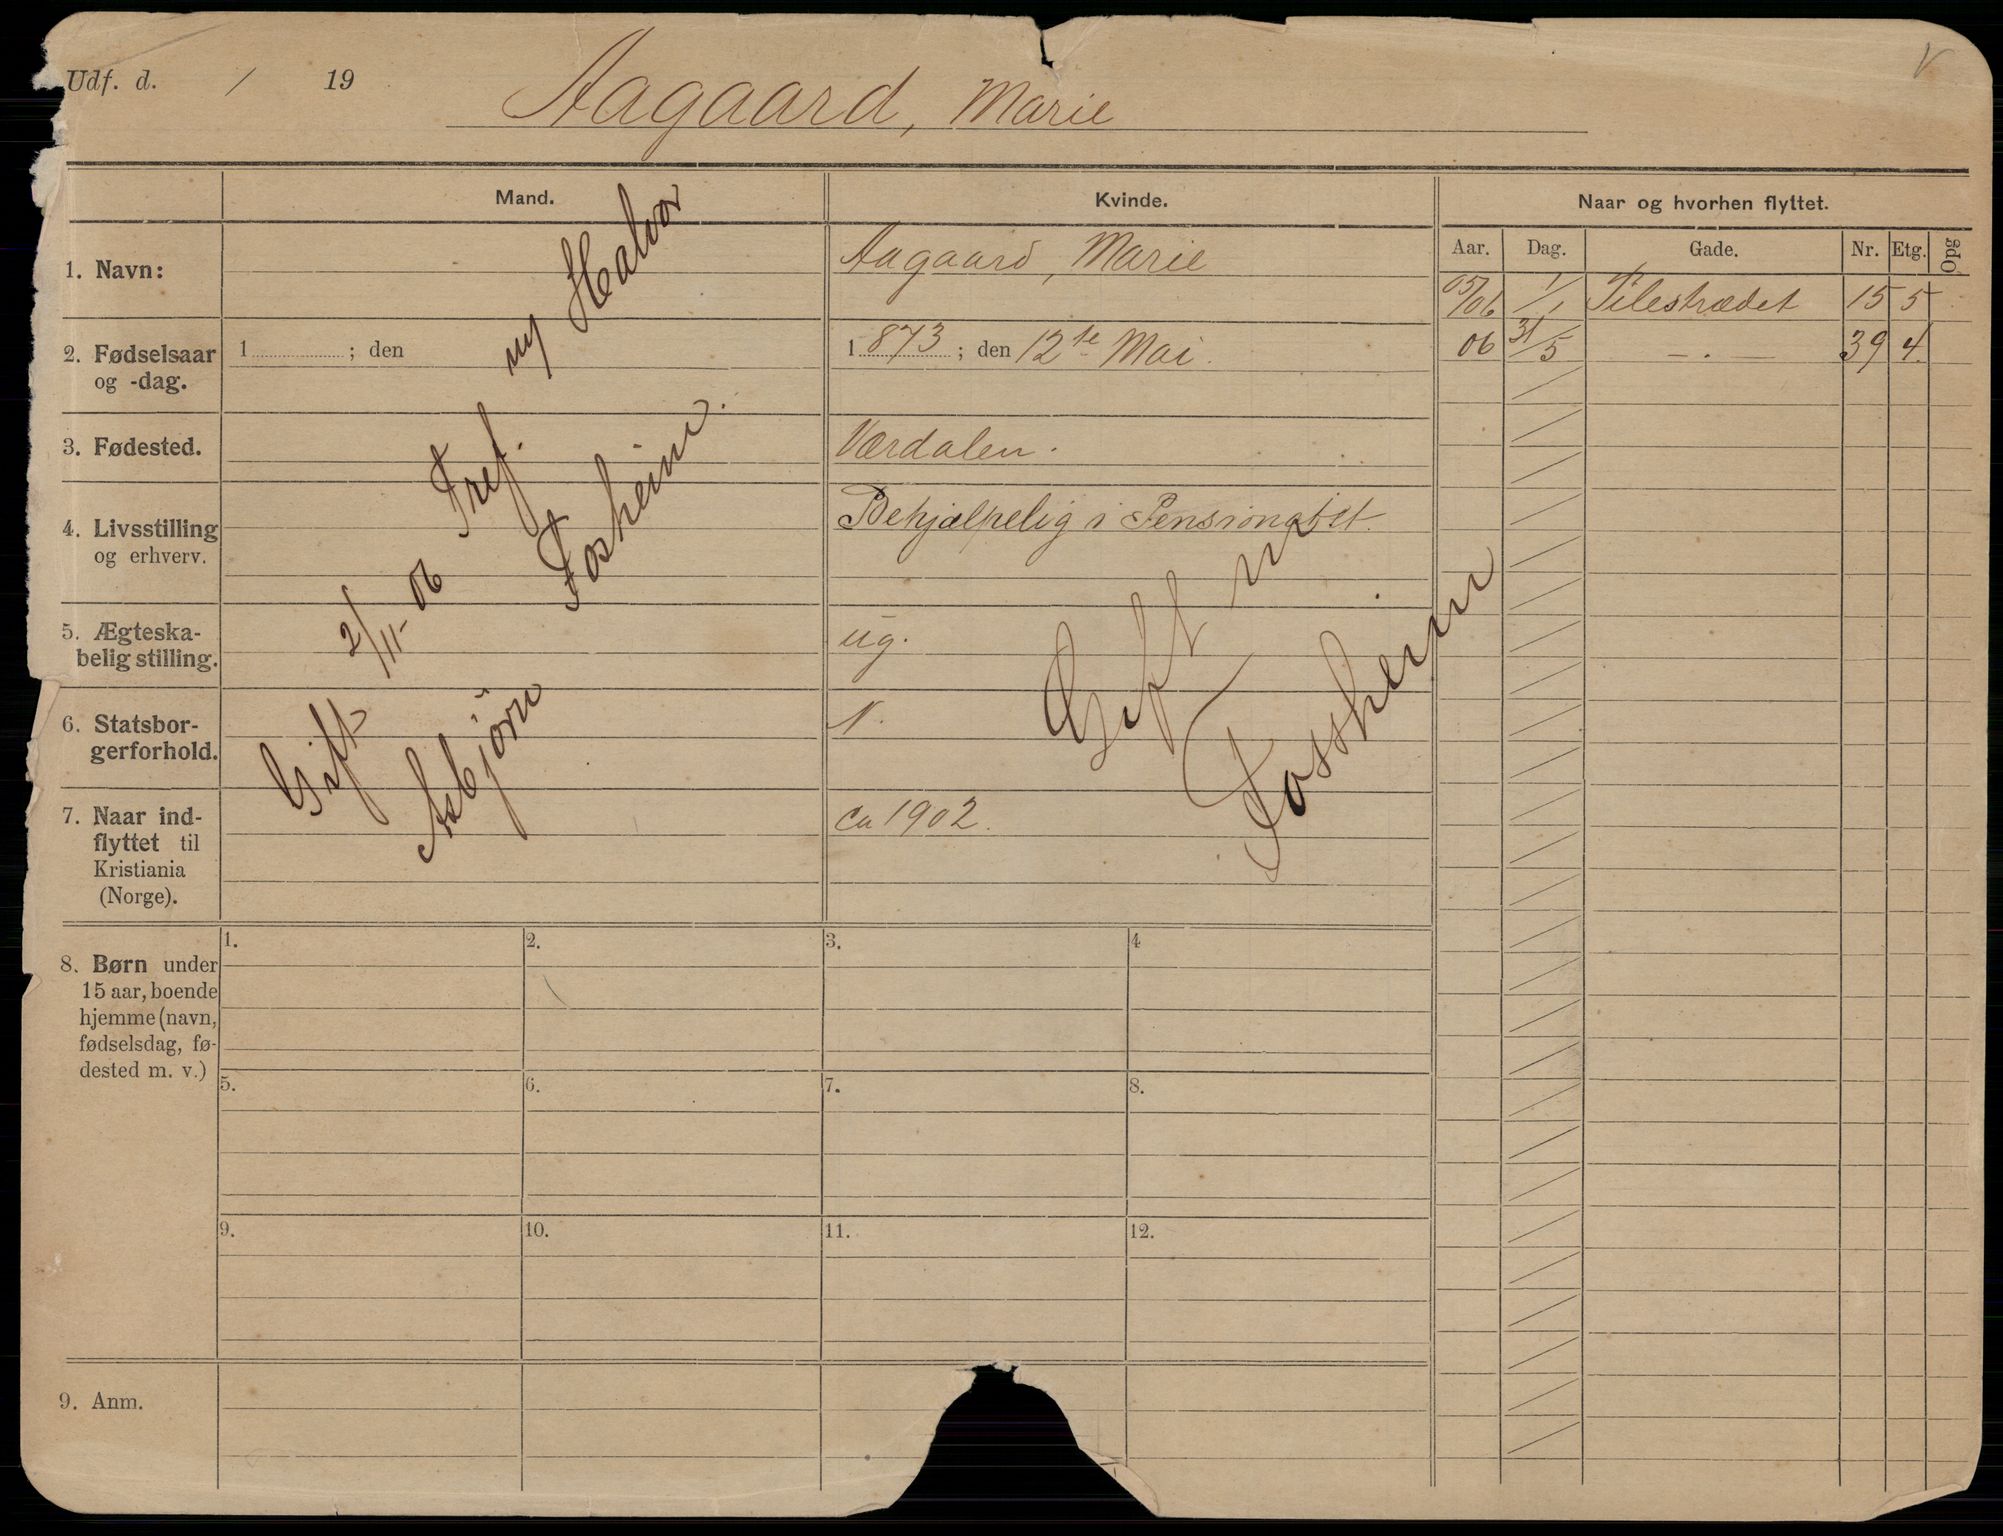 Udf. d. / 19
Aagaard, Marie
V
Mand.
Kvinde.
Naar og hvorhen flyttet.
Aar. Dag. Gade. Nr. Etg. Opg
05/06 1/1 Pilestrædet 15 5
06 31/5 — . — 39 4
1. Navn:
Aagaard, Marie
2. Fødselsaar
og -dag.
1 ; den
1 873 ; den 12te Mai.
3. Fødested.
Værdalen.
4. Livsstilling
og erhverv.
Behjælpelig i Pensionatet.
5. Ægteska-
belig stilling.
ug.
6. Statsbor-
gerforhold.
N.
7. Naar ind-
flyttet til
Kristiania
(Norge).
ca 1902.
Gift 2/11-06 Fref. Halvor
Asbjörn Fosheim.
Gift
Fossheim
8. Børn under
15 aar, boende
hjemme (navn,
fødselsdag, fø-
dested m. v.)
1. 2. 3. 4
5. 6. 7. 8.
9. 10. 11. 12.
9. Anm.